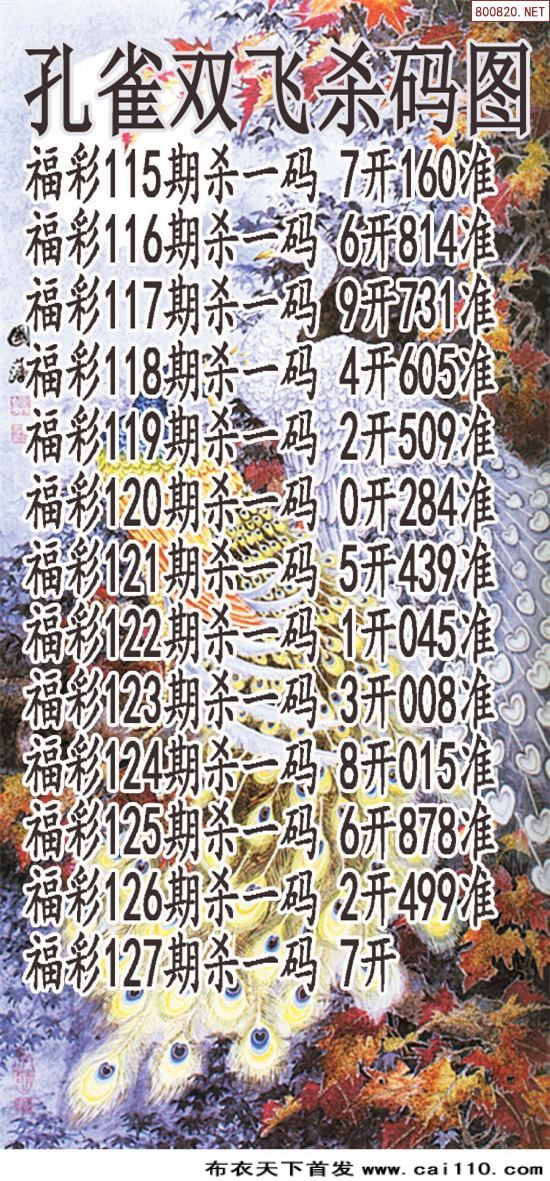 800820.NET
孔雀双飞杀码图
福彩115期杀一码 7开160准
福彩116期杀一码 6开814准
福彩117期杀一码 9开731准
福彩118期杀一码 4开605准
福彩119期杀一码 2开509准
福彩120期杀一码 0开284准
福彩121期杀一码 5开439准
福彩122期杀一码 1开045准
福彩123期杀一码 3开008准
福彩124期杀一码 8开015准
福彩125期杀一码 6开878准
福彩126期杀一码 2开499准
福彩127期杀一码 7开
布衣天下首发 www.cai110.com